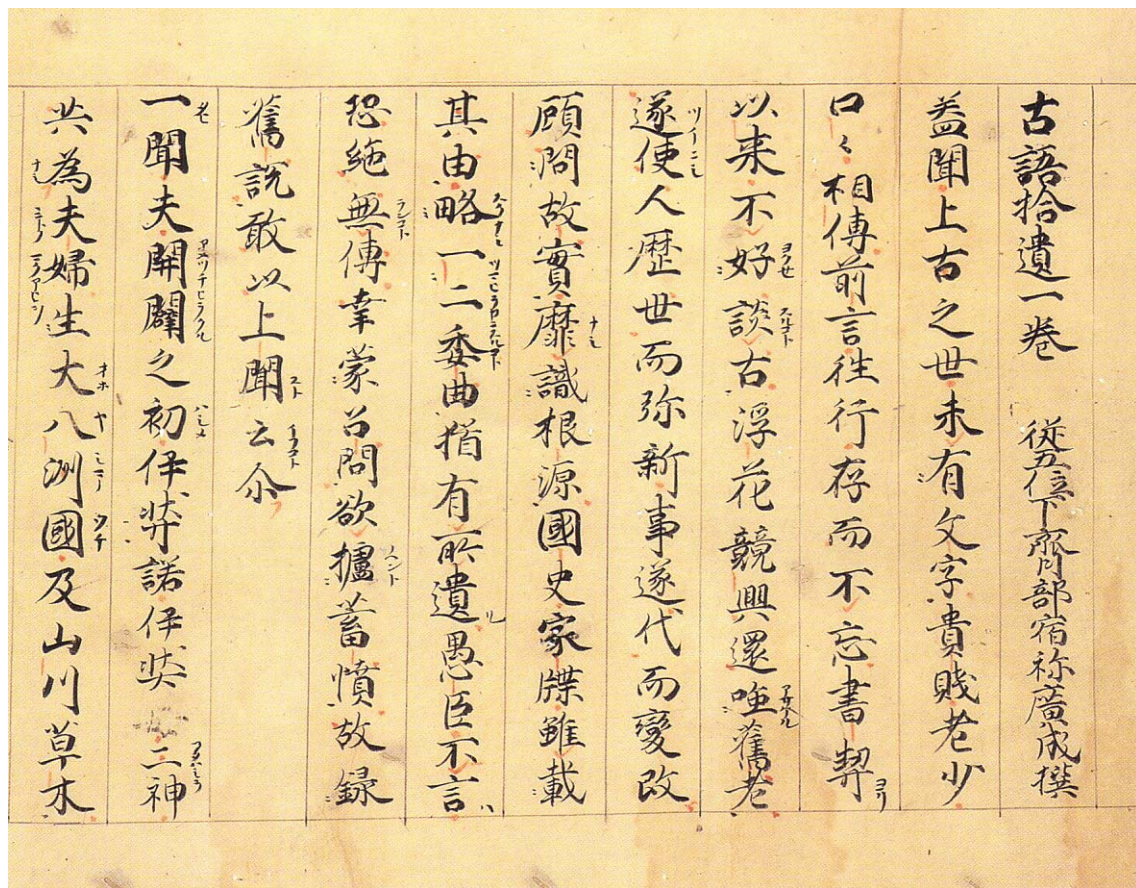 古語拾遺一巻　従五位下齋部宿祢廣成撰
盖聞上古之世未有文字貴賤老少
口々相傳前言往行存而不忘書契
以来不好談古浮花競興還嗤舊老
遂使人歴世而弥新事逐代而變改
顧問故實靡識根源國史家牒雖載
其由略一二委曲猶有所遺愚臣不言
恐絶無傳幸蒙召問欲攄蓄憤故録
舊説敢以上聞云尒
一聞夫開闢之初伊弉諾伊弉二神
共為夫婦生大八洲國及山川草木